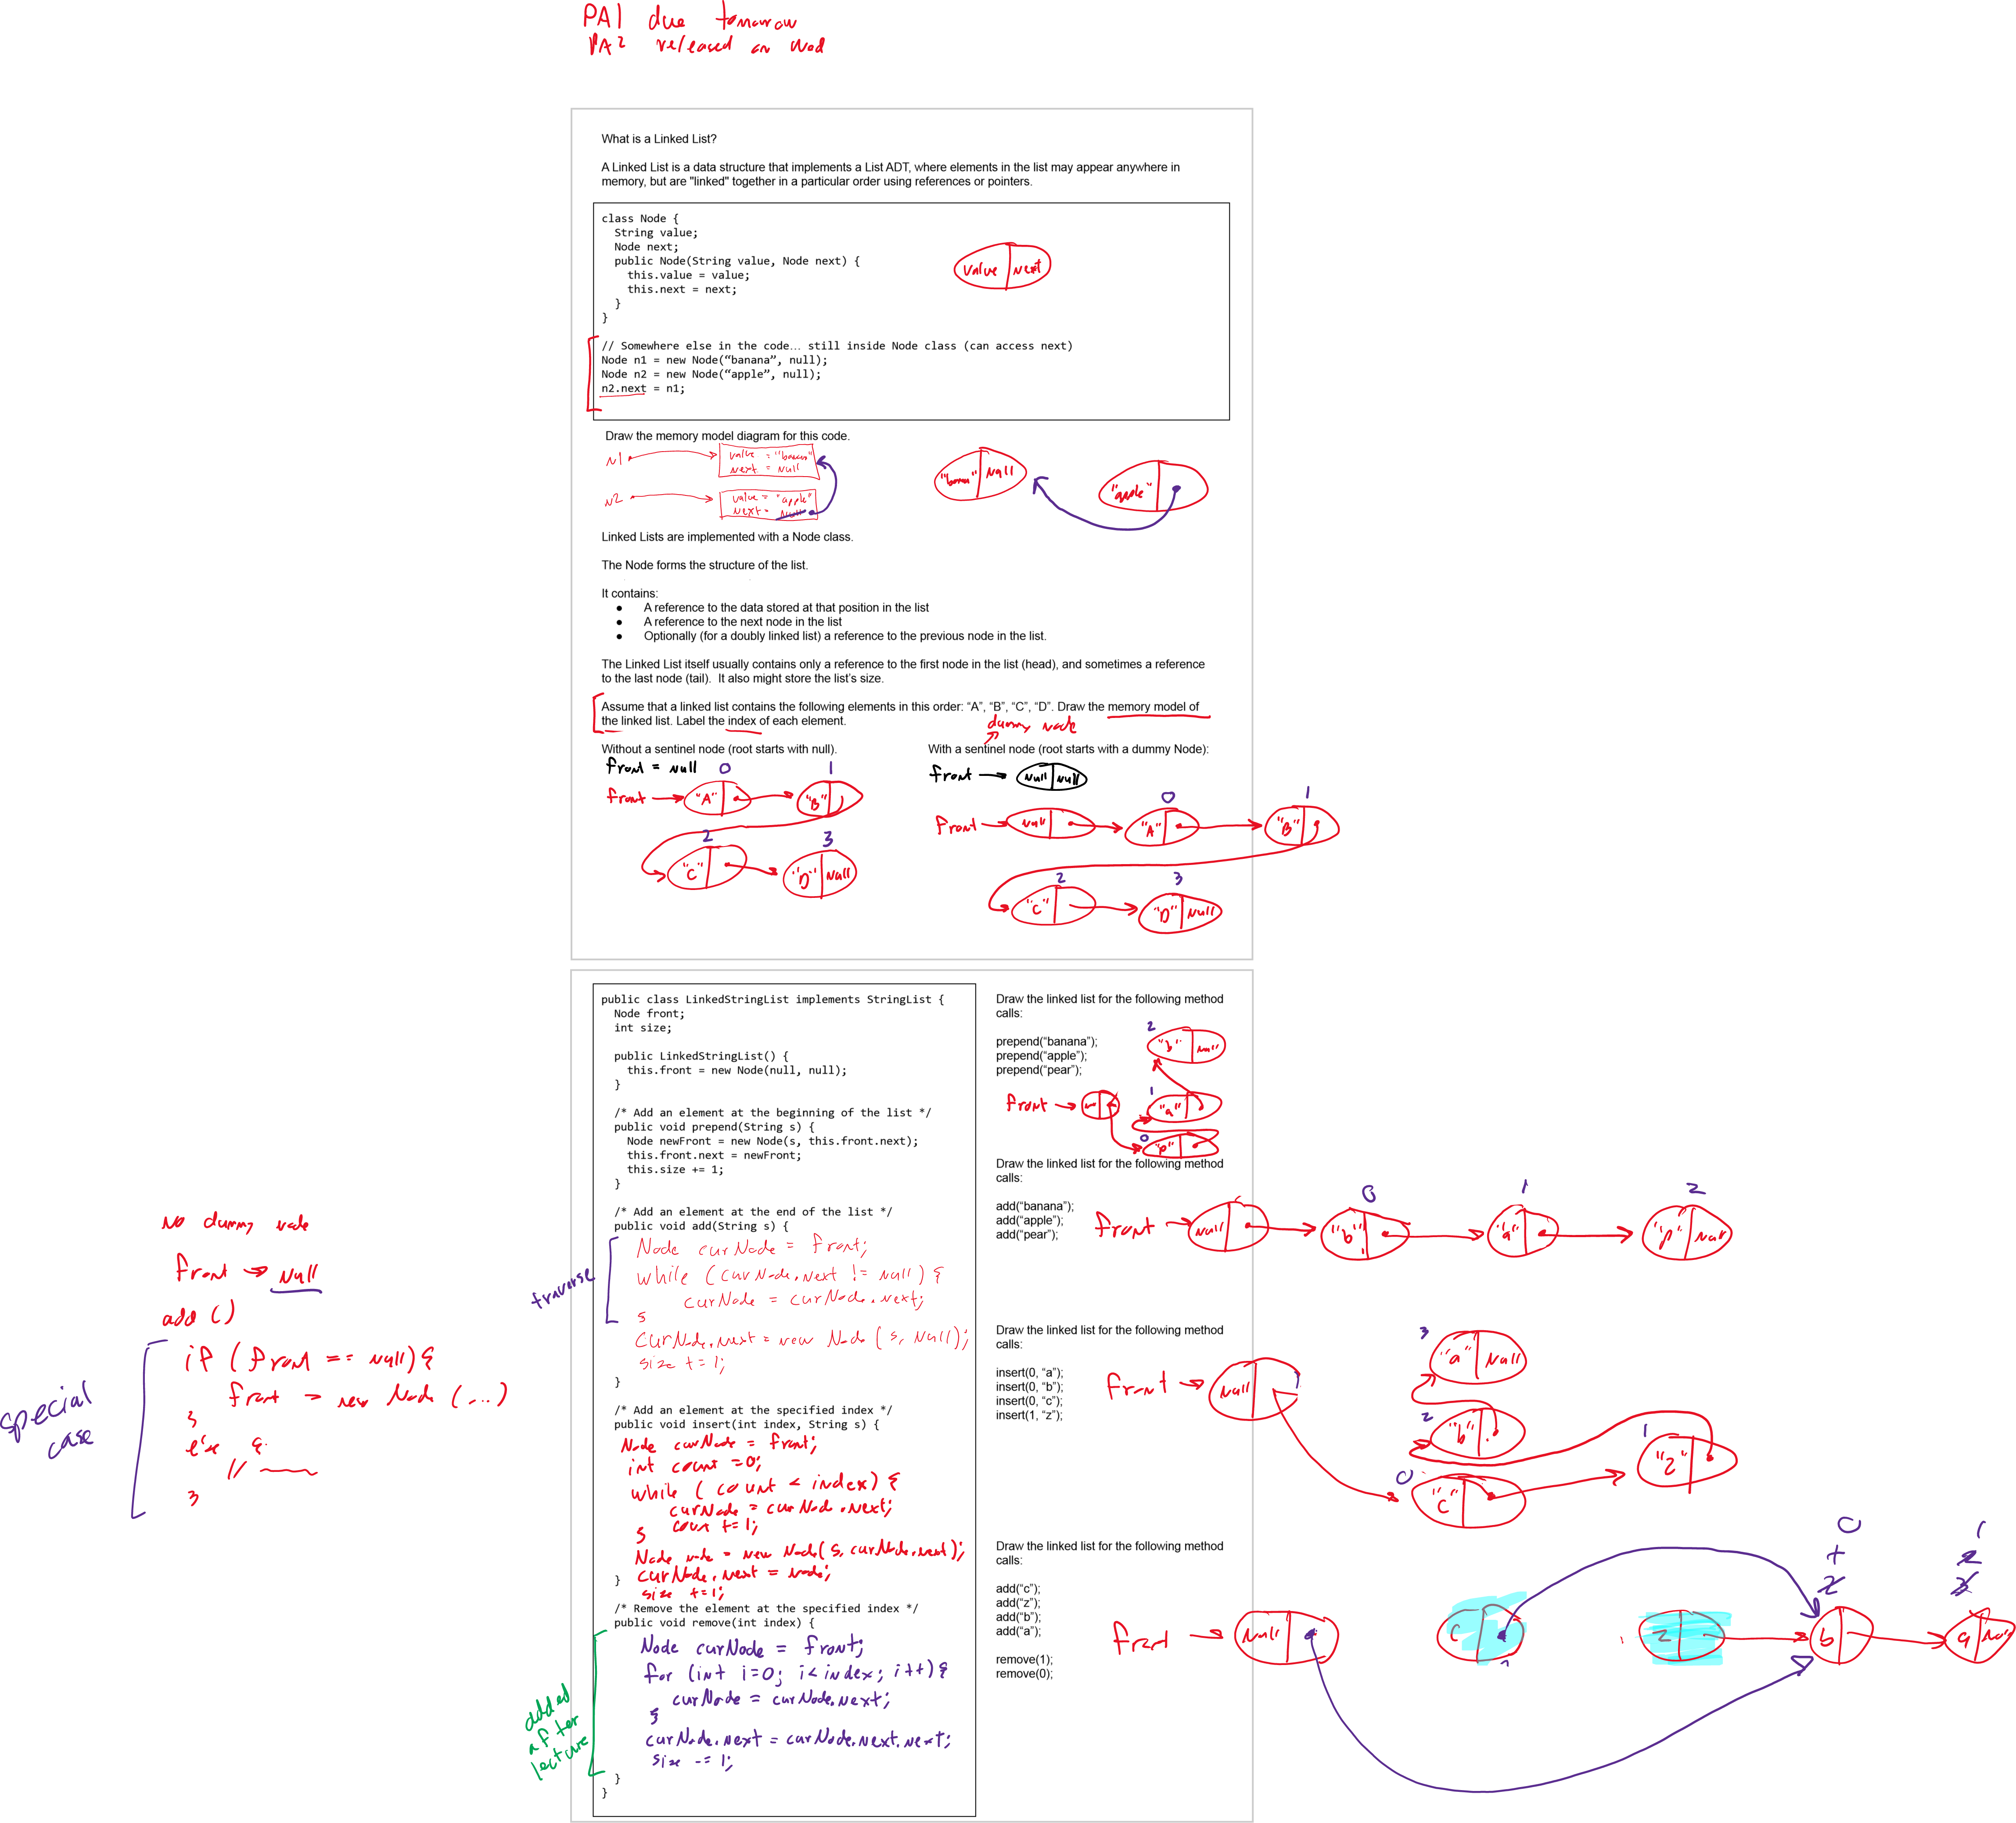 PA1 due tomorrow
PA2 released on Wed
What is a Linked List?
A Linked List is a data structure that implements a List ADT, where elements in the list may appear anywhere in
memory, but are "linked" together in a particular order using references or pointers.
class Node {
String value;
Node next;
public Node(String value, Node next) {
this.value = value;
this.next = next;
}
}
value next
// Somewhere else in the code... still inside Node class (can access next)
Node n1 = new Node(“banana”, null);
Node n2 = new Node(“apple”, null);
n2.next = n1;
Draw the memory model diagram for this code.
n1
value = "banana"
next = null
n2
value = "apple"
next = null
"banana" null
"apple"
Linked Lists are implemented with a Node class.
The Node forms the structure of the list.
It contains:
● A reference to the data stored at that position in the list
● A reference to the next node in the list
● Optionally (for a doubly linked list) a reference to the previous node in the list.
The Linked List itself usually contains only a reference to the first node in the list (head), and sometimes a reference
to the last node (tail). It also might store the list’s size.
Assume that a linked list contains the following elements in this order: “A”, “B”, “C”, “D”. Draw the memory model of
the linked list. Label the index of each element.
dummy node
Without a sentinel node (root starts with null).
front = null
0 1
front "A" "B"
2 3
"C" "D" null
With a sentinel node (root starts with a dummy Node):
front null null
0 1
front null "A" "B"
2 3
"C" "D" null
public class LinkedStringList implements StringList {
Node front;
int size;
public LinkedStringList() {
this.front = new Node(null, null);
}
/* Add an element at the beginning of the list */
public void prepend(String s) {
Node newFront = new Node(s, this.front.next);
this.front.next = newFront;
this.size += 1;
}
/* Add an element at the end of the list */
public void add(String s) {
traverse
Node curNode = front;
while (curNode.next != null) {
curNode = curNode.next;
}
curNode.next = new Node (s, null);
size += 1;
}
/* Add an element at the specified index */
public void insert(int index, String s) {
Node curNode = front;
int count = 0;
while (count < index) {
curNode = curNode.next;
count += 1;
}
Node node = new Node(s, curNode.next);
curNode.next = node;
}
size += 1;
/* Remove the element at the specified index */
public void remove(int index) {
added
after
lecture
Node curNode = front;
for (int i=0; i<index; i++) {
curNode = curNode.next;
}
curNode.next = curNode.next.next;
size -= 1;
}
}
no dummy node
front null
add ()
special
case
if (front == null) {
front = new Node (...)
}
else {
//
}
Draw the linked list for the following method
calls:
prepend(“banana”);
prepend(“apple”);
prepend(“pear”);
2
"b" null
1
front "a"
0
"p"
Draw the linked list for the following method
calls:
add(“banana”);
add(“apple”);
add(“pear”);
0 1 2
front null "b" "a" "p" null
Draw the linked list for the following method
calls:
insert(0, “a”);
insert(0, “b”);
insert(0, “c”);
insert(1, “z”);
front null
3
"a" null
2
"b"
1
"z"
0
"c"
Draw the linked list for the following method
calls:
add(“c”);
add(“z”);
add(“b”);
add(“a”);
remove(1);
remove(0);
0 1
1 2
2 3
front null c z b a null